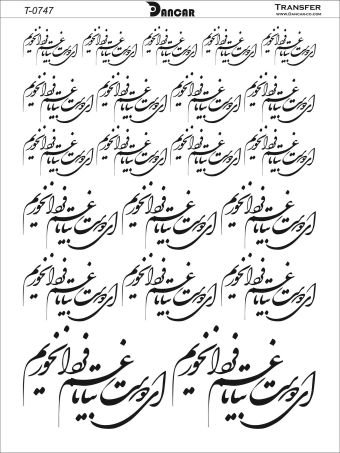 T-0747 DANCAR TRANSFER
WWW.DANCARCO.COM
ای دوست بیا تا غم فردا نخوریم ای دوست بیا تا غم فردا نخوریم ای دوست بیا تا غم فردا نخوریم ای دوست بیا تا غم فردا نخوریم ای دوست بیا تا غم فردا نخوریم
ای دوست بیا تا غم فردا نخوریم ای دوست بیا تا غم فردا نخوریم ای دوست بیا تا غم فردا نخوریم ای دوست بیا تا غم فردا نخوریم
ای دوست بیا تا غم فردا نخوریم ای دوست بیا تا غم فردا نخوریم ای دوست بیا تا غم فردا نخوریم ای دوست بیا تا غم فردا نخوریم
ای دوست بیا تا غم فردا نخوریم ای دوست بیا تا غم فردا نخوریم ای دوست بیا تا غم فردا نخوریم
ای دوست بیا تا غم فردا نخوریم ای دوست بیا تا غم فردا نخوریم ای دوست بیا تا غم فردا نخوریم
ای دوست بیا تا غم فردا نخوریم ای دوست بیا تا غم فردا نخوریم